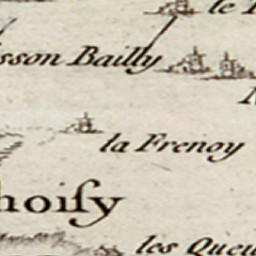 le
sson Bailly
la Frenoy
hoiſy
les Queu